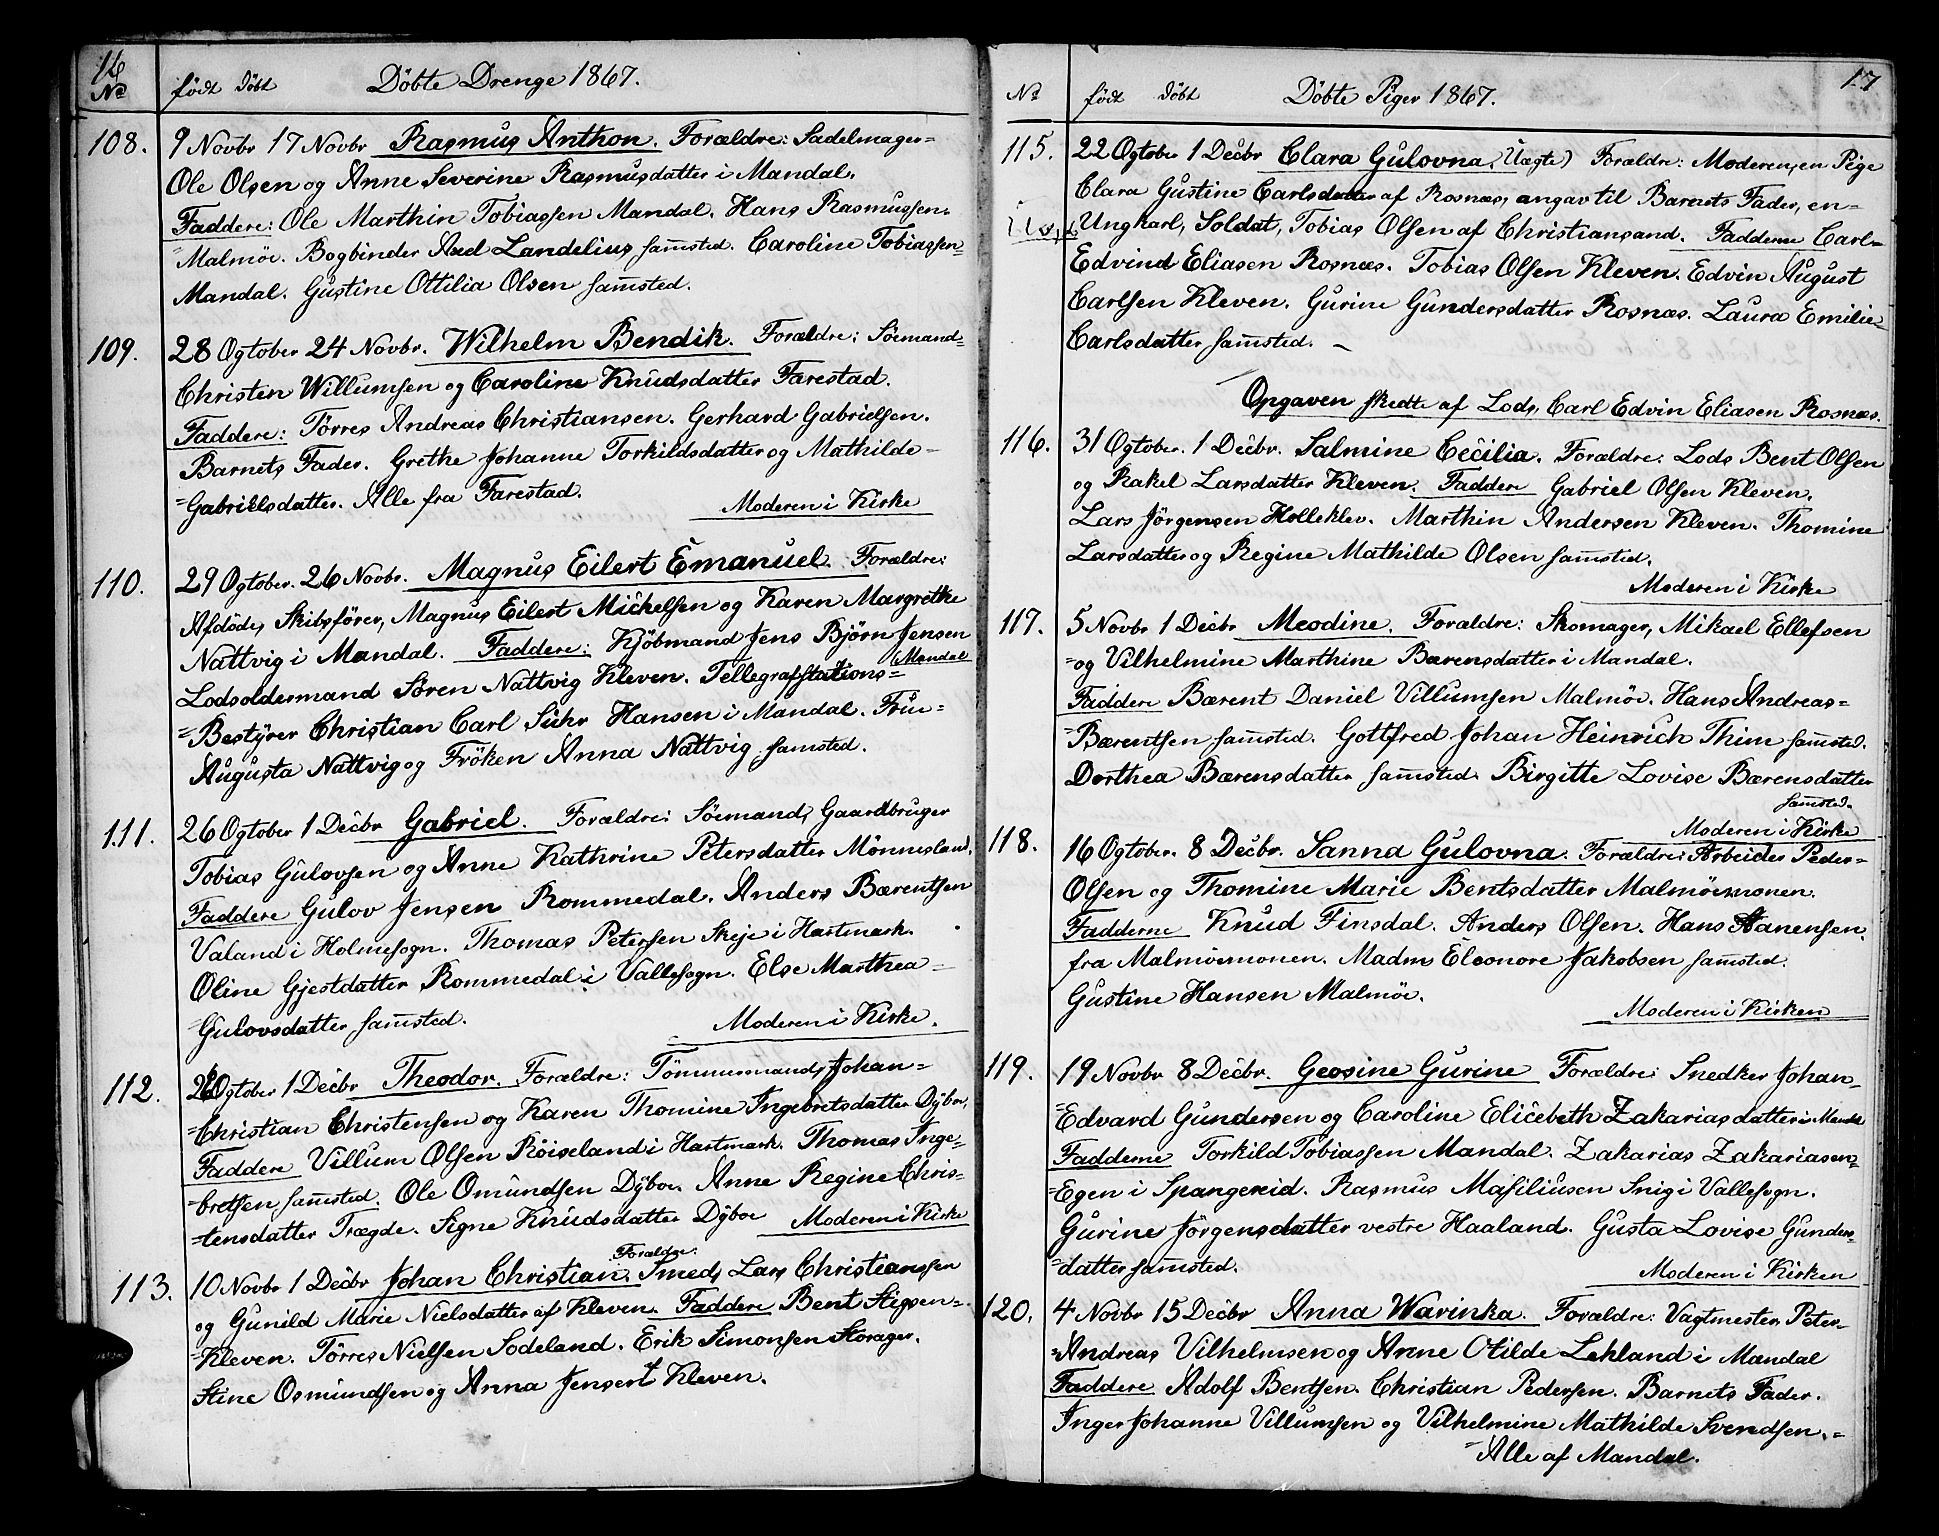 16
No
født Döbt Döbte Drenge 1867.
108. 9 Novbr 17 Novbr Rasmus Anthon. Forældre: Sadelmager=
Ole Olsen og Anne Severine Rasmusdatter i Mandal.
Faddere: Ole Marthin Tobiassen Mandal. Hans Rasmussen.
=Malmöe. Bogbinder Axel Landelius samsted. Caroline Tobiassen=
Mandal. Gustine Ottilia Olsen samsted.
109. 28 Ogtober 24 Novbr. Wilhelm Bendik. Forældre: Söemand=
Christen Willumsen og Caroline Knudsdatter Farestad.
Faddere: Törres Andreas Christiansen. Gerhard Gabrielsen.
Barnets Fader. Grethe Johanne Torkildsdatter og Mathilde=
=Gabrielsdatter. Alle fra Farestad.
Moderen i Kirke
110. 29 Ogtober. 26 Novbr. Magnus Eilert Emanuel. Forældre:
Afdöde, Skibsförer, Magnus Eilert Mickelsen og Karen Margrethe
Nattvig i Mandal. Faddere: Kjöbmand Jens Björn Jensen
Mandal
Lodsoldermand Sören Nattvig Kleven. Tellegrafstations=
=Bestyrer Christian Carl Suhr Hansen i Mandal. Frue=
Augusta Nattvig og Fröken Anna Nattvig samsted.
111. 26 Ogtober 1 Decbr Gabriel. Forældre: Söemand, Gaardbruger
Tobias Gulovsen og Anne Kathrine Petersdatter Mönnesland.
Faddere Gulov Jensen Rommedal. Anders Bærentsen
Valand i Holmesogn. Thomas Petersen Skeje i Hartmark.
Oline Gjestdatter Rommedal i Vallesogn. Else Marthea=
=Gulovsdatter samsted. Moderen i Kirke.
112. Ogtober 1 Decbr Theodor. Forældre: Tömmermand, Johan=
=Christian Christensen og Karen Thomine Ingebretsdatter Dyboe.
Faddere Villum Olsen Röiseland i Hartmark. Thomas Inge=
bretsen samsted. Ole Omundsen Dyboe. Anne Regine Chris=
=tensdatter Trægde. Signe Knudsdatter Dyboe Moderen i Kirke
Forældre:
113. 10 Novbr 1 Decbr Johan Christian. Smed, Lars Christianssen
og Gunild Marie Nielsdatter af Kleven. Faddere Bent Stigsen=
=Kleven. Törres Nielsen Sodeland. Erik Simonsen Storager.
Stine Osmundsen og Anna Jensen Kleven.
17
No født Döbt Döbte Piger 1867.
115. 22 Ogtober 1 Decbr Clara Gulovna. (Uægte) Forældre: Moderen, en Pige
Clara Gustine Carlsdatter af Rosnæs, angav til Barnets Fader, en=
Uægte Ungkarl, Soldat, Tobias Olsen af Christiansand. Fadderne Carl=
Edvind Eliasen Rosnæs. Tobias Olsen Kleven. Edvin August
Carlsen Kleven. Gurine Gundersdatter Rosnæs. Laura Emilie=
Carlsdatter samsted.
Opgaven skedte af Lods, Carl Edvin Eliasen Rosnæs.
116. 31 Ogtober. 1 Decbr. Salmine Cecilia. Forældre: Lods Bent Olsen
og Rakel Larsdatter Kleven. Faddere Gabriel Olsen Kleven.
Lars Jörgensen Holleklev. Marthin Andersen Kleven. Thomine
Larsdatter og Regine Mathilde Olsen samsted.
Moderen i Kirke
117. 5 Novbr 1 Decbr Meodine. Forældre: Skomager, Mikael Ellefsen
=og Vilhelmine Marthine Bærensdatter i Mandal.
Faddere Bærent Daniel Villumsen Malmöe. Hans Andreas=
=Bærentsen samsted. Gottfred Johan Heinrich Thim samsted.
Dorthea Bærensdatter samsted. Birgitte Lovise Bærensdatter
samsted.
Moderen i Kirke
118. 16 Ogtober. 8 Decbr. Sanna Gulovna. Forældre: Arbeider Peder=
Olsen og Thomine Marie Bentsdatter Malmöemonen.
Fadderne Knud Finsdal. Anders Olsen. Hans Aanensen.
fra Malmöemonen. Madm Eleonore Jakobsen samsted.
Gustine Hansen Malmöe. Moderen i Kirken
119. 19 Novbr 8 Decbr. Geosine Gurine Forældre: Snedker Johan=
=Edvard Gundersen og Caroline Elicebeth Zakariasdatter i Mandal
Fadderne Torkild Tobiassen Mandal. Zakarias Zakariasen=
=Egen i Spangereid. Rasmus Masiliusen Snig i Vallesogn.
Gurine Jörgensdatter vestre Haaland. Gusta Lovise Gunders=
=datter samsted. Moderen i Kirken
120. 4 Novbr 15 Decbr Anna Warinka. Forældre: Vagtmester, Peter=
=Andreas Vilhelmsen og Anne Otilde Lehland i Mandal
Faddere Adolf Bentsen. Christian Pedersen. Barnets Fader.
Inger Johanne Villumsen og Vilhelmine Mathilde Svendsen.=
=Alle af Mandal.